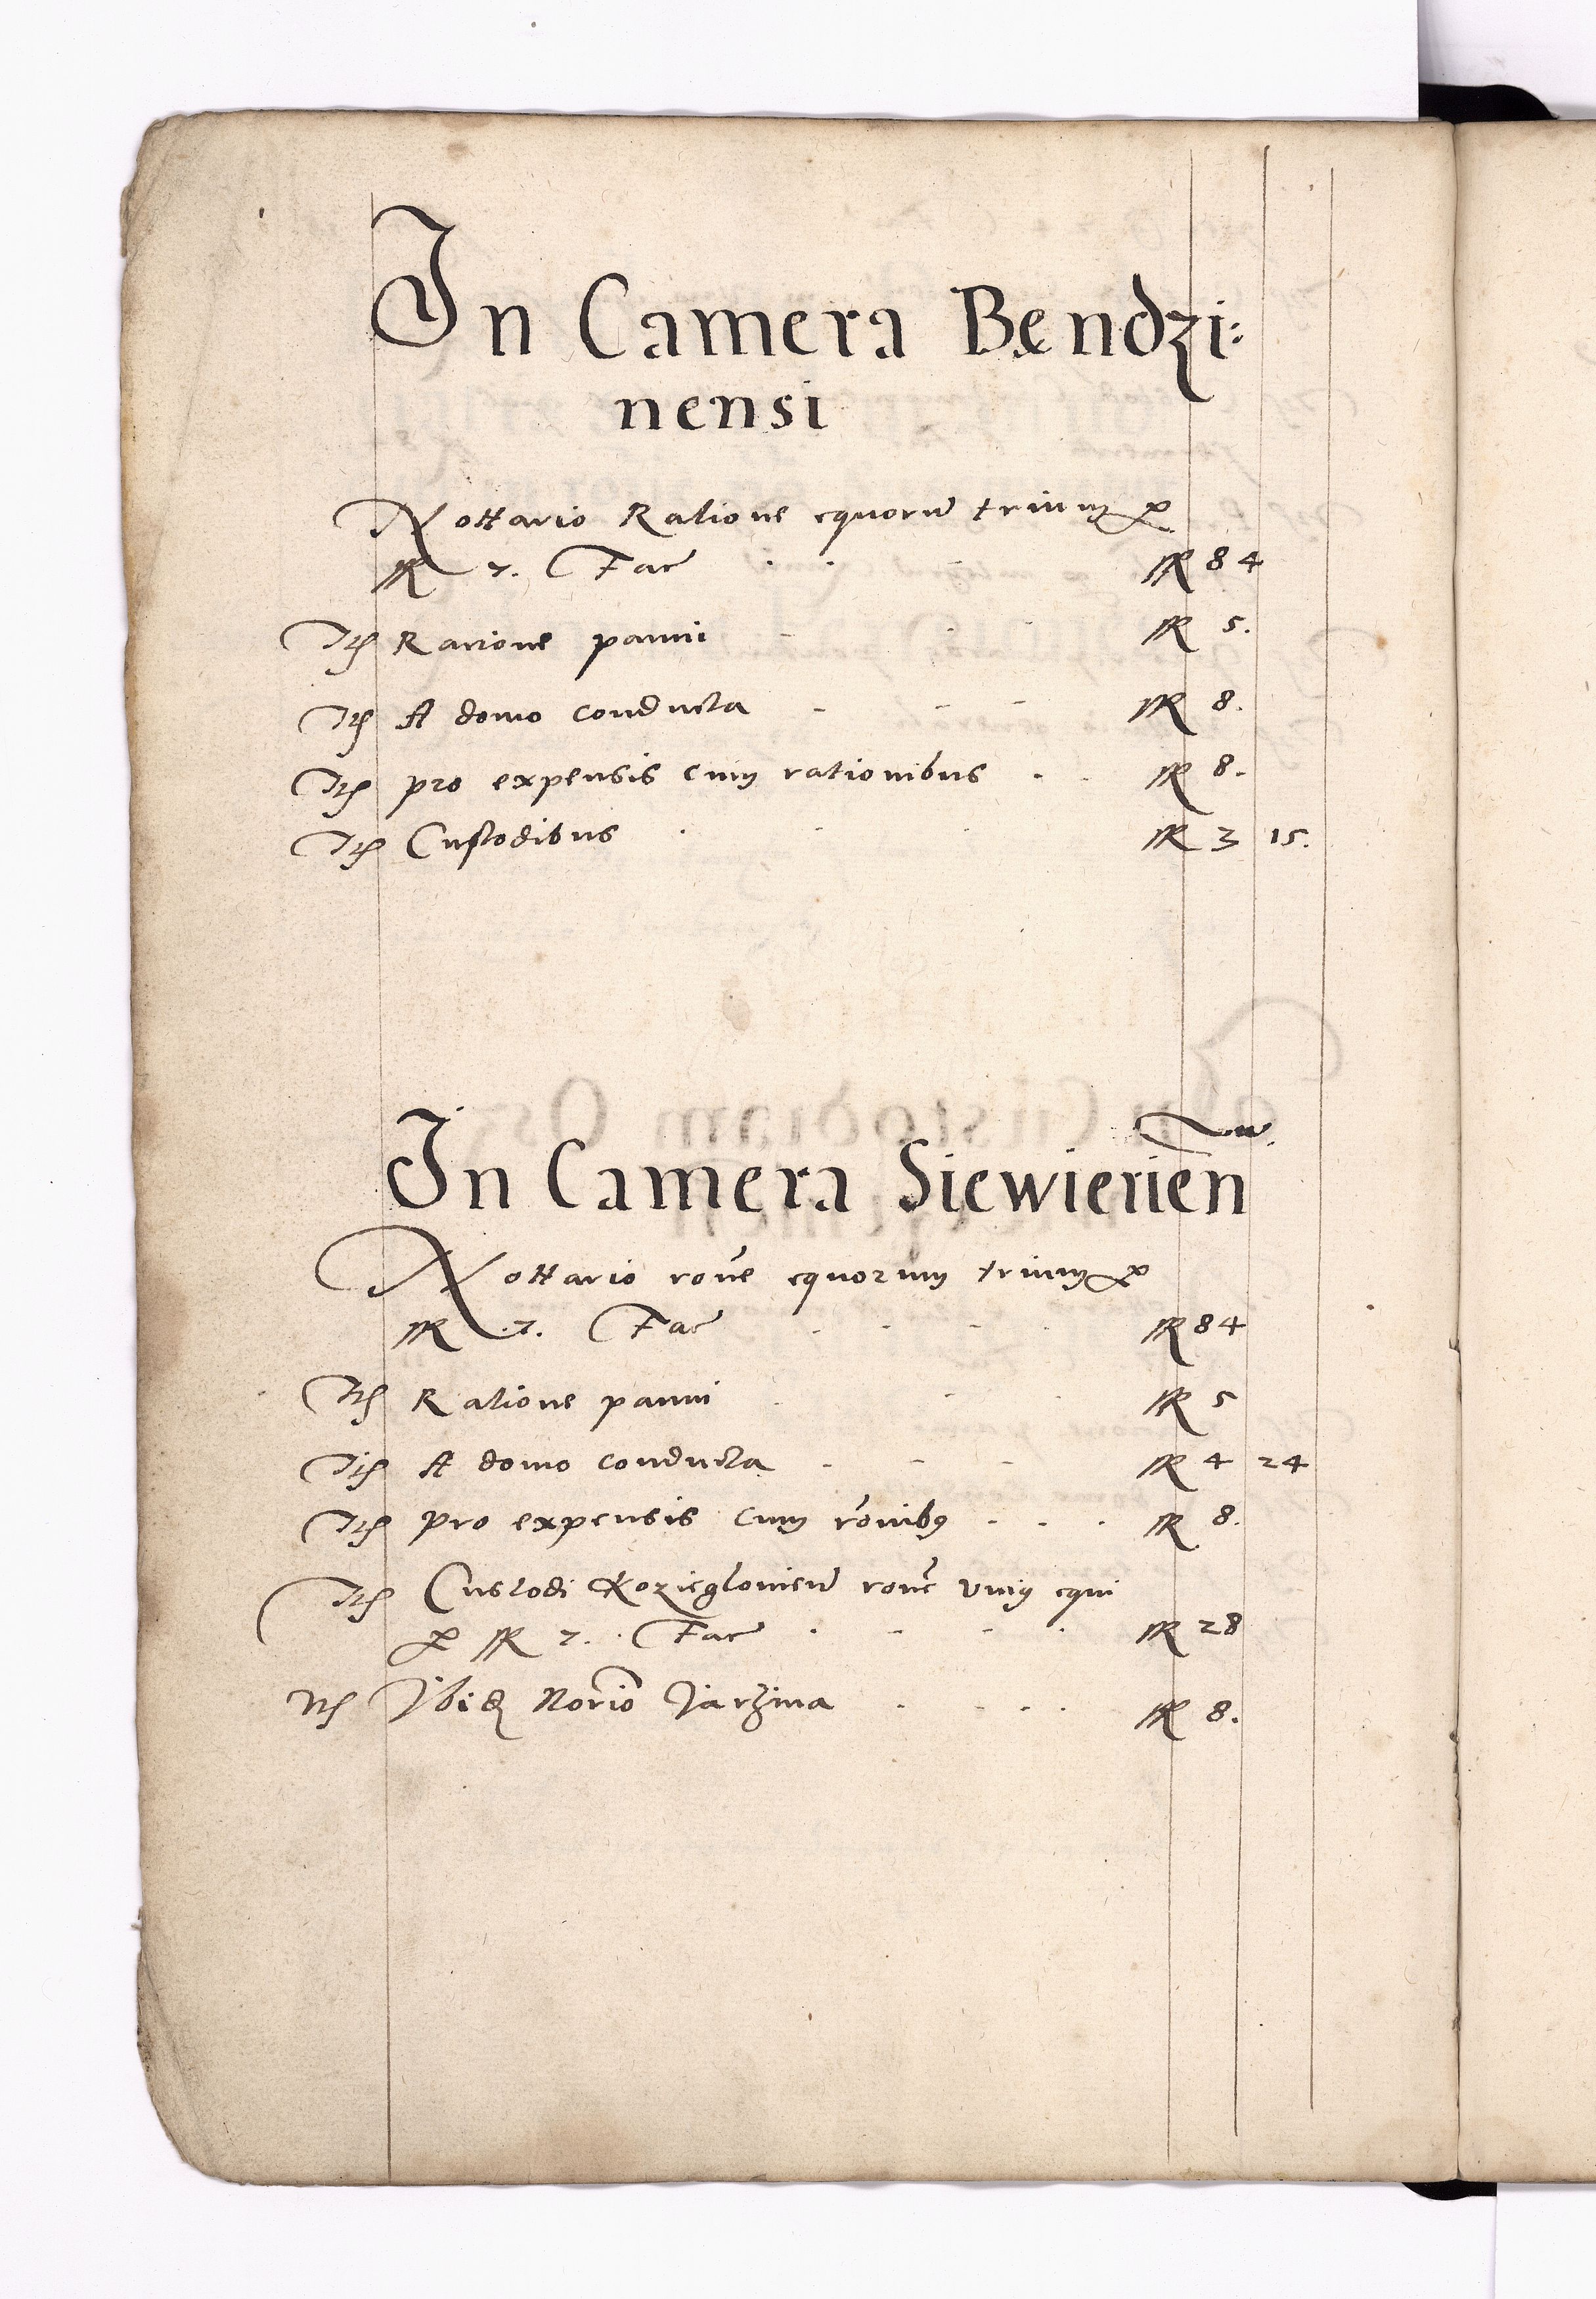 In Camera Bendzi:
nensi
Nottario Ratione equorũ trium p
M 7. Fac M 84
Itẽ Ratione panni M 5.
Itẽ A domo conducta M 8.
Itẽ pro expensis cum rationibus M 8.
Itẽ Custodibus M 3 15.
In Camera Siewierieñ
Nottario roñe equorum trium p
M 7. Fac M 84
Itẽ Ratione panni M 5
Itẽ A domo conducta M 4 24
Itẽ pro expensis cum rõnibꝰ M 8.
Itẽ Custodi Koziegloвieñ roñe vniꝰ equi
p M 7. Fac M 28
Itẽ Ibidẽ Norio Jarzina M 8.